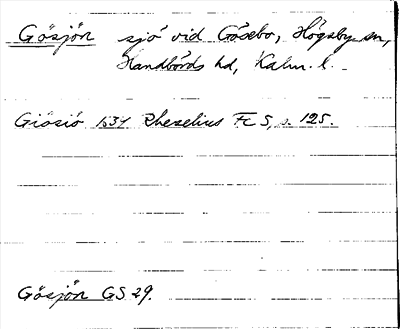 Gösjön sjö vid Gösebo, Högsby sn,
Handbörds hd, Kalm. l.
Giösiö 1634 Rhezelius Fc 5, s. 125.
Gösjön GS 29.